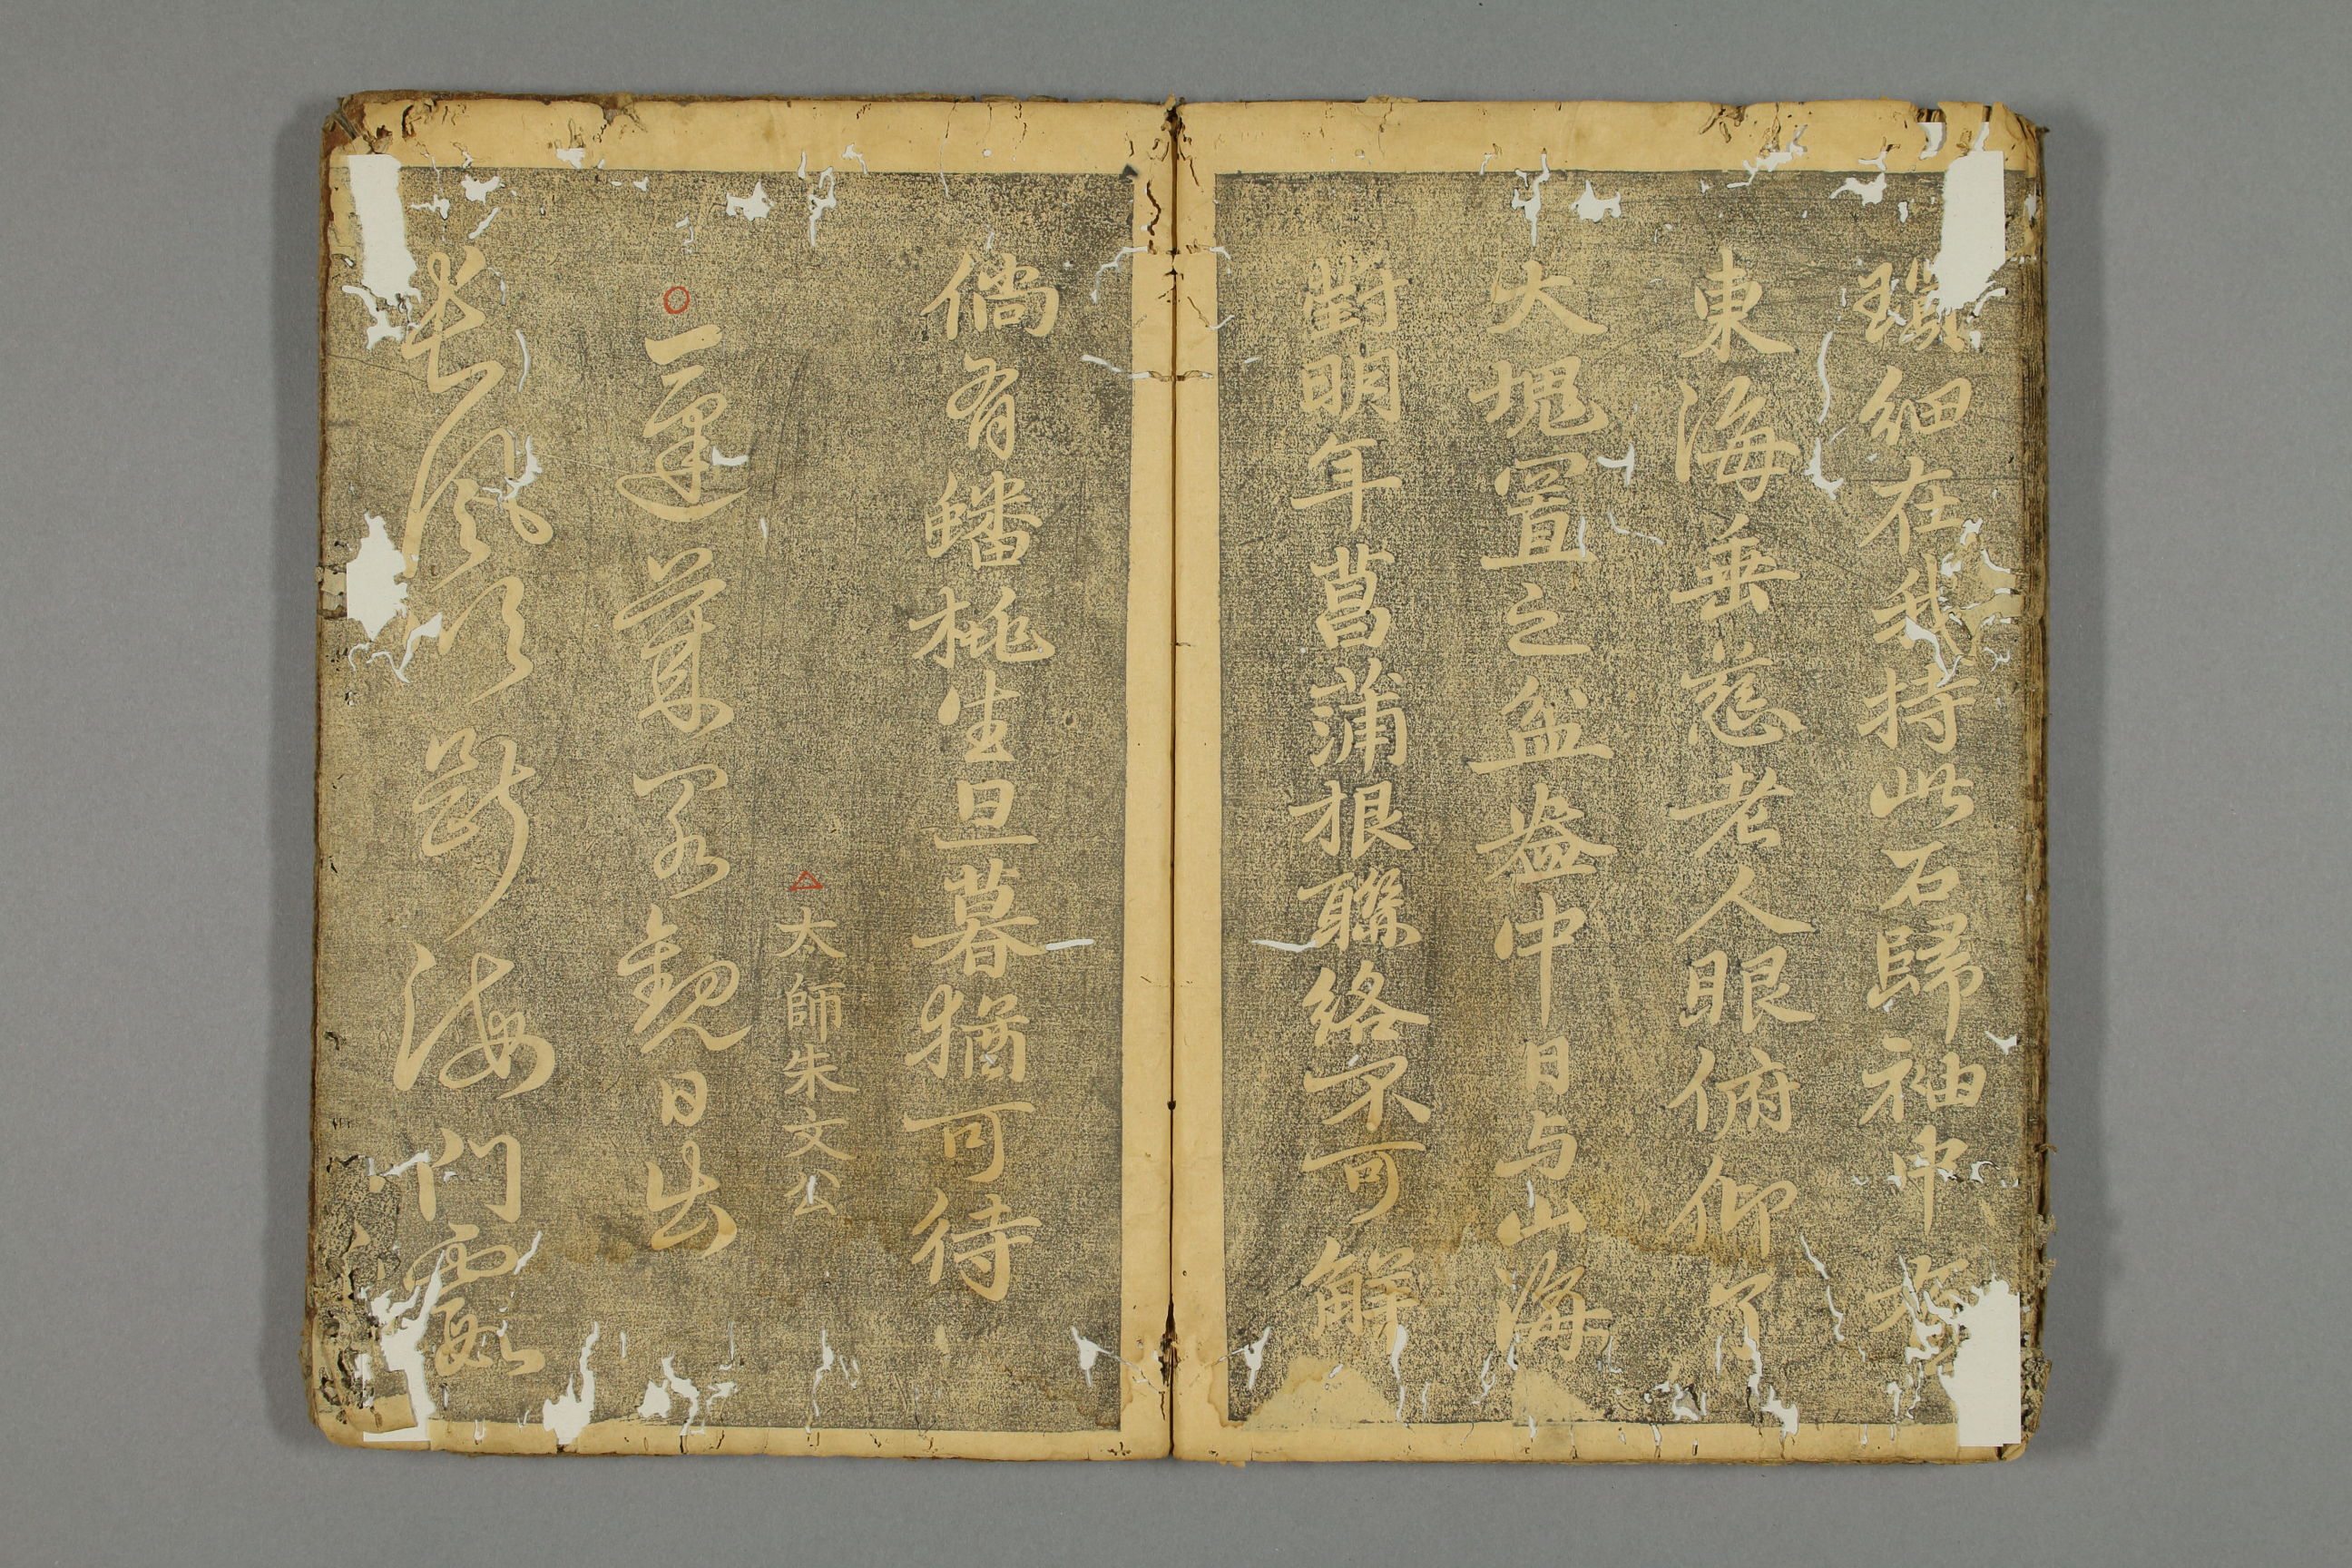 瑣細在我持此石歸袖中有
東海垂慈老人眼俯仰了
大塊置之盆盎中日与山海
對明年菖蒲根聯絡不可解
倘有蟠桃生旦暮猶可待
太師朱文公
一觀日出
長風吹斷海門霞